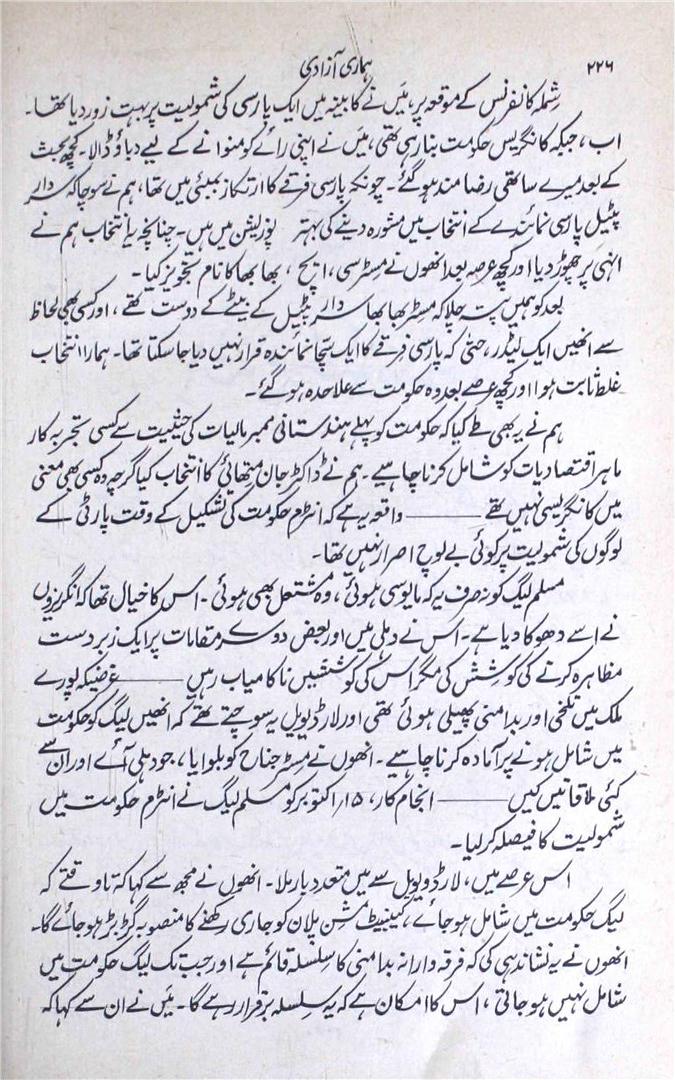 ۲۲۶
ہماری آزادی
شملہ کانفرنس کے موقعہ پر، میَں نے کابینہ میں ایک پارسی کی شمولیت پر بہت زور دیا تھا۔
اب، جبکہ کانگریس حکومت بنا رہی تھی، میَں نے اپنی رائے کو منوانے کے لیے دباؤ ڈالا۔ کچھ بحث
کے بعد میرے ساتھی رضا مند ہو گئے۔ چونکہ پارسی فرقے کا ارتکاز بمبئی میں تھا، ہم نے سوچا کہ سردار
پٹیل پارسی نمائندے کے انتخاب میں مشورہ دینے کی بہتر پوزیشن میں ہیں۔ چنانچہ یہ انتخاب ہم نے
انہی پر چھوڑ دیا اور کچھ عرصہ بعد انھوں نے مسٹر سی، ایچ، بھابھا کا نام تجویز کیا۔
بعد کو ہمیں پتہ چلا کہ مسٹر بھابھا سردار پٹیل کے بیٹے کے دوست تھے، اور کسی بھی لحاظ
سے انھیں ایک لیڈر، حتیٰ کہ پارسی فرقے کا ایک سچّا نمائندہ قرار نہیں دیا جا سکتا تھا۔ ہمارا انتخاب
غلط ثابت ہوا اور کچھ عرصے بعد وہ حکومت سے علاحدہ ہو گئے۔
ہم نے یہ بھی طے کیا کہ حکومت کو پہلے ہندستانی ممبر مالیات کی حیثیت سے کسی تجربہ کار
ماہر اقتصادیات کو شامل کرنا چاہیے۔ ہم نے ڈاکٹر جان متھائی کا انتخاب کیا گرچہ وہ کسی بھی معنی
میں کانگریسی نہیں تھے ——— واقعہ یہ ہے کہ انٹرم حکومت کی تشکیل کے وقت پارٹی کے
لوگوں کی شمولیت پر کوئی بے لوچ اصرار نہیں تھا۔
مسلم لیگ کو نہ صرف یہ کہ مایوسی ہوئی، وہ مشتعل بھی ہوئی۔ اس کا خیال تھا کہ انگریزوں
نے اسے دھوکا دیا ہے۔ اس نے دہلی میں اور بعض دوسرے مقامات پر ایک زبردست
مظاہرہ کرنے کی کوشش کی مگر اس کی کوششیں ناکامیاب رہیں ——— غرضیکہ پورے
ملک میں تلخی اور بدامنی پھیلی ہوئی تھی اور لارڈ ویول یہ سوچتے تھے کہ انھیں لیگ کو حکومت
میں شامل ہونے پر آمادہ کرنا چاہیے۔ انھوں نے مسٹر جناح کو بلوایا، جو دہلی آئے اور ان سے
کئی ملاقاتیں کیں ——— انجام کار، ۱۵؍ اکتوبر کو مسلم لیگ نے انٹرم حکومت میں
شمولیت کا فیصلہ کر لیا۔
اس عرصے میں، لارڈ ویول سے میں متعدد بار ملا۔ انھوں نے مجھ سے کہا کہ تا وقتے کہ
لیگ حکومت میں شامل ہو جائے، کیبینیٹ مشن پلان کو جاری رکھنے کا منصوبہ گڑبڑ ہو جائے گا۔
انھوں نے یہ نشاندہی کی کہ فرقہ وارانہ بدامنی کا سلسلہ قائم ہے اور جب تک لیگ حکومت میں
شامل نہیں ہو جاتی، اس کا امکان ہے کہ یہ سلسلہ برقرار رہے گا۔ میَں نے ان سے کہا کہ